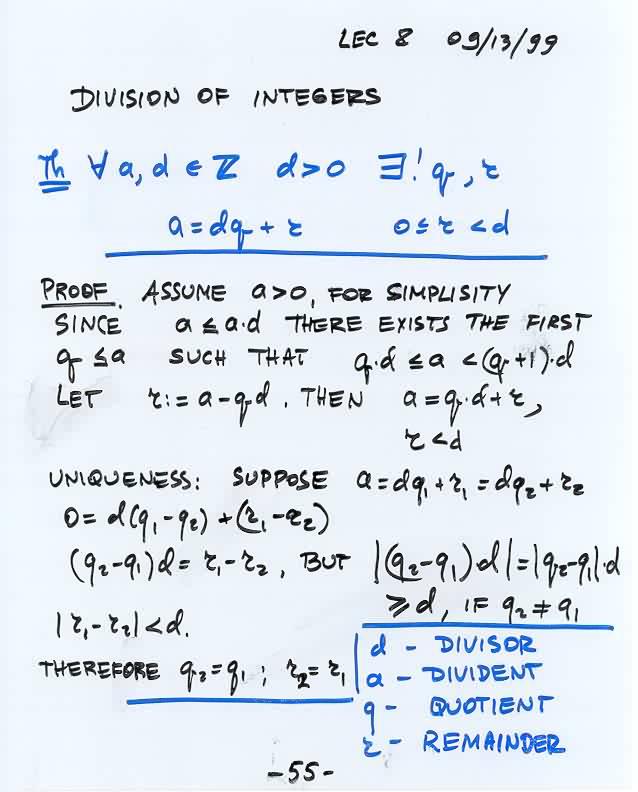 LEC 8 09/13/99
DIVISION OF INTEGERS
Th ∀ a, d ∈ ℤ d > 0 ∃! q, r
a = dq + r 0 ≤ r < d
PROOF. ASSUME a>0, FOR SIMPLISITY
SINCE a ≤ a·d THERE EXISTS THE FIRST
q ≤ a SUCH THAT q·d ≤ a < (q+1)·d
LET r := a - qd. THEN a = q·d + r,
r < d
UNIQUENESS: SUPPOSE a = dq₁ + r₁ = dq₂ + r₂
0 = d(q₁-q₂) + (r₁-r₂)
(q₂-q₁)d = r₁-r₂, BUT |(q₂-q₁)·d| = |q₂-q₁|·d
≥ d, IF q₂ ≠ q₁
|r₁-r₂| < d.
THEREFORE q₂ = q₁; r₂ = r₁
d - DIVISOR
a - DIVIDENT
q - QUOTIENT
r - REMAINDER
-55-